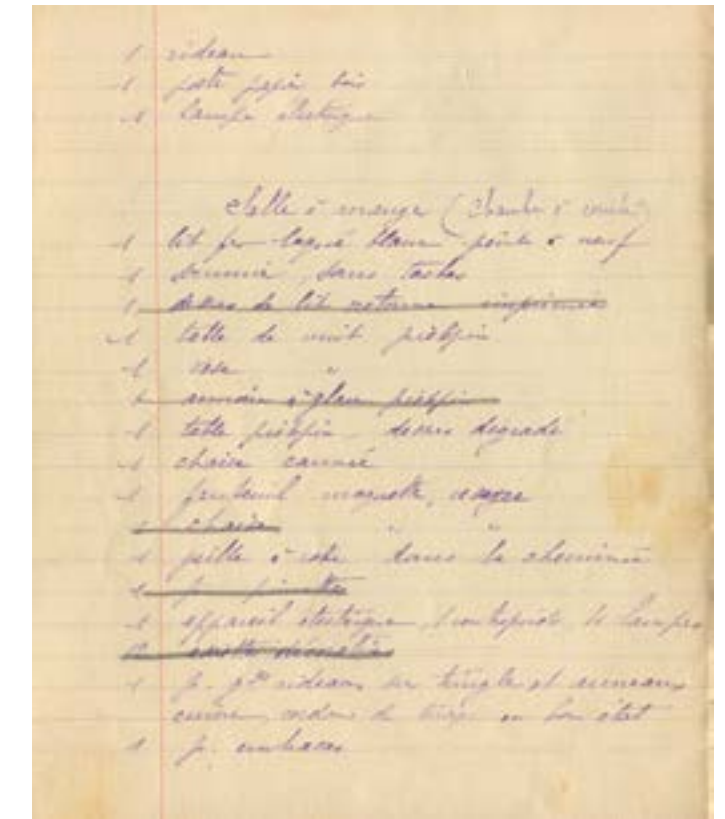 1 rideau
1 porte papier bois
1 lampe électrique
Salle à manger (Chambre à
1 lit fer laqué blanc peint à neuf
1 sommier, sans taches
1 dessus de lit imprimé
1 table de nuit pitchpin
1 vase "
1 armoire à glace pitchpin
1 table pitchpin dessus dégradé
1 chaise cannée
1 fauteuil moquette, usagée
1 chaise " "
1 grille à coke dans la cheminée
1 p.
1 appareil électrique, 1 contrepoids, lampes
1 p. gds rideaux sur tringle et anneaux
cuivre, cordons de tirage en bon état
1 p. embrasses